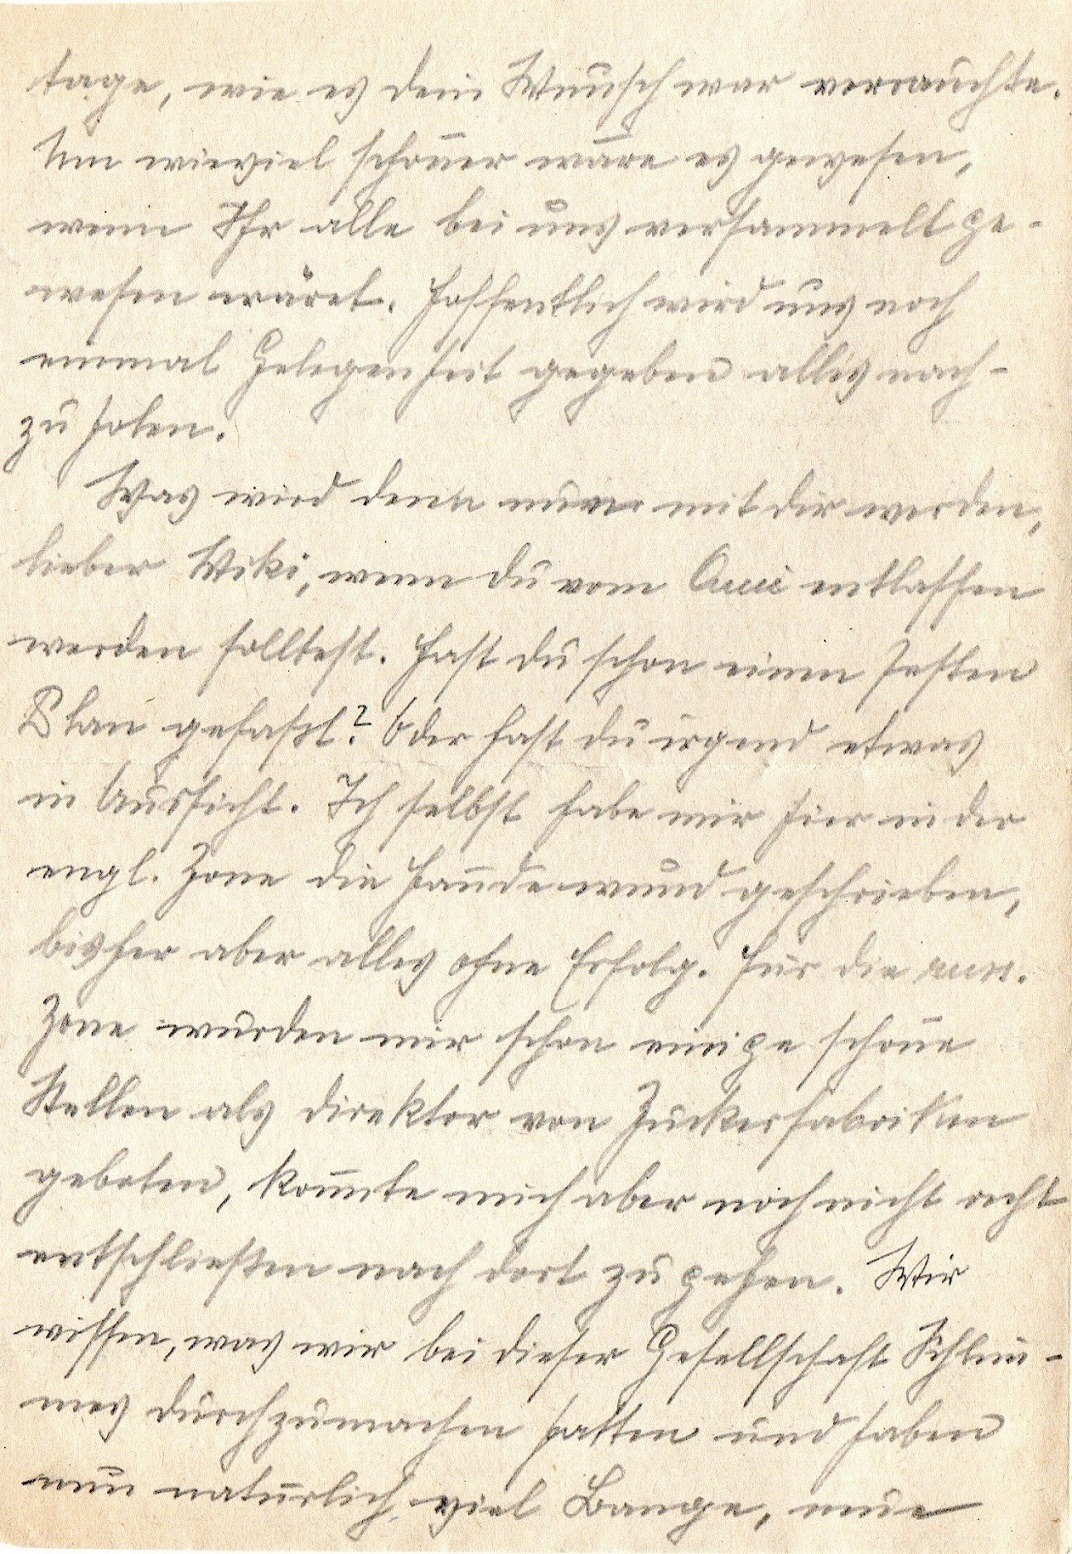 tage, wie es dein Wunsch war verrauchte.
Um wieviel schöner wäre es gewesen,
wenn Ihr alle bei uns versammelt ge-
wesen wäret. Hoffentlich wird uns noch
einmal Gelegenheit gegeben alles nach-
zu holen.
Was wird denn nun mit dir werden,
lieber Wiki, wenn du vom Ami entlassen
werden solltest. Hast du schon einen festen
Plan gefaßt? Oder hast du irgend etwas
in Aussicht. Ich selbst habe mir hier in der
engl. Zone die Hände wund geschrieben,
bisher aber alles ohne Erfolg. Für die russ.
Zone wurden mir schon einige schöne
Stellen als Direktor von Zuckerfabriken
geboten, konnte mich aber noch nicht
entschließen nach dort zu gehen. Wir
wissen, was wir bei dieser Gesellschaft Schlim-
mes durchzumachen hatten und haben
nun natürlich viel Bange,